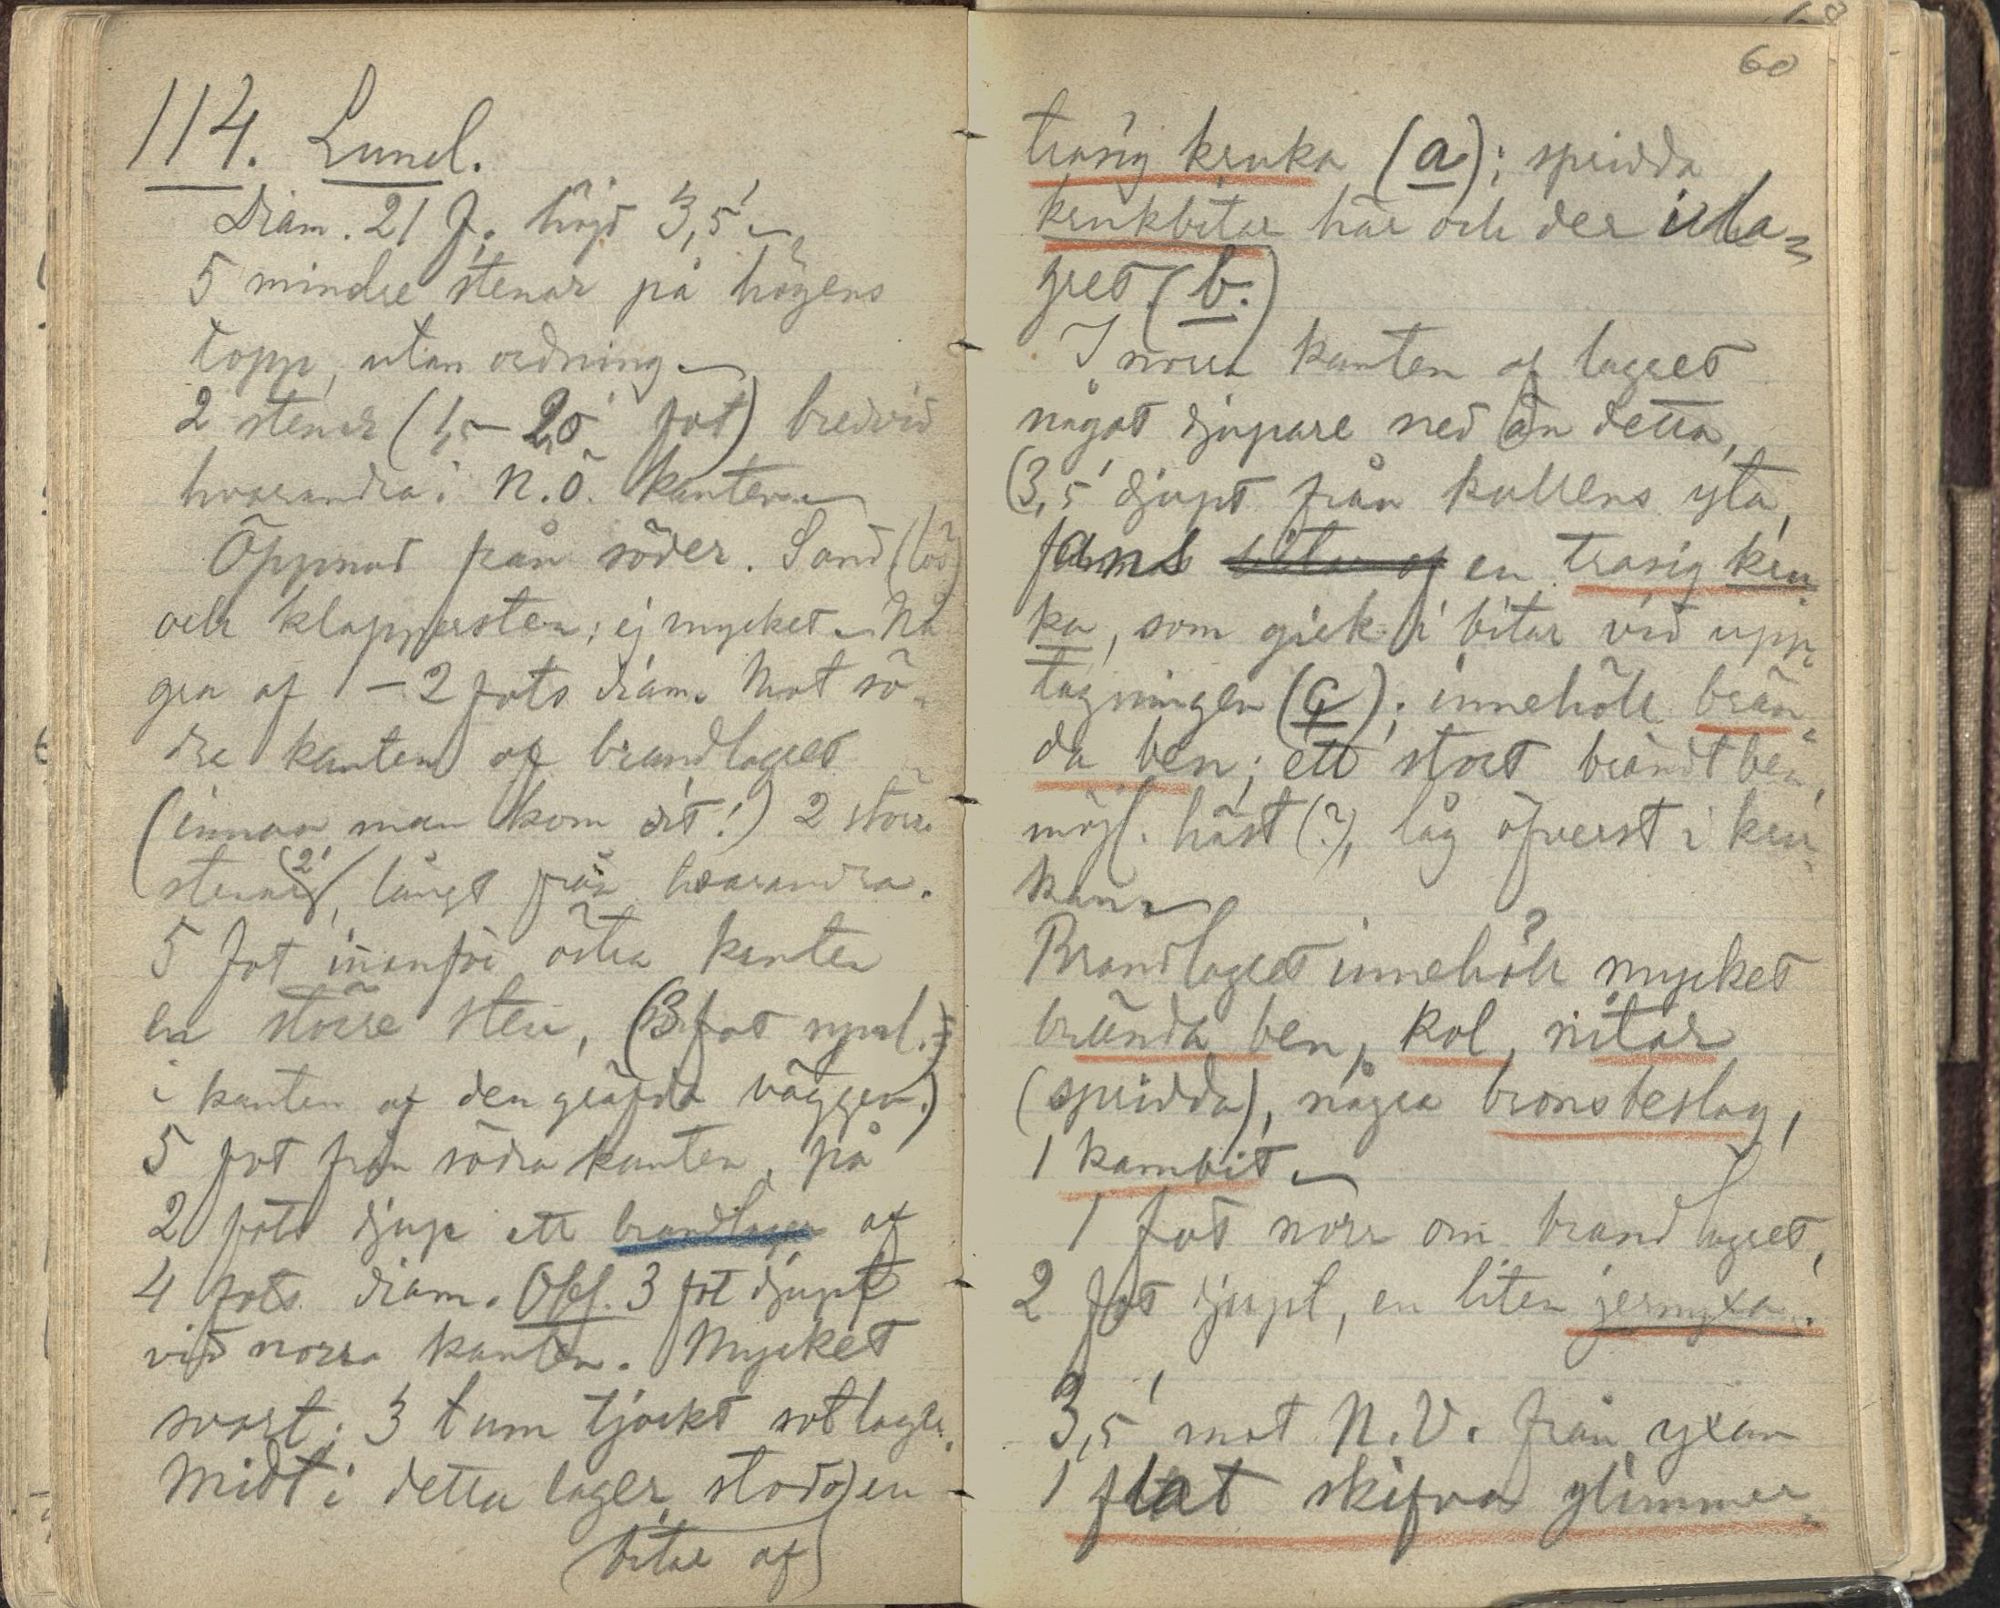 114. Lund.
Diam. 21 f. höjd 3,5'
5 mindre stenar på högens
topp, utan ordning.
2 stenar (1,5 – 2,5 fot) bredvid
hvarandra i N.Ö. kanten
Öppnad från söder. Sand (lös)
och klappersten; ej mycket. Nå
gra af 1 – 2 fots diam. Mot sö-
dre kanten af brandlagret
(innan man kom dit!) 2 större
stenar (2'), långt från hvarandra.
5 fot innanför östra kanten
en större sten, (3 fot
i kanten af den gräfda väggen.)
5 fot från södra kanten, på
2 fots djup ett brandlager af
4 fots diam. Obs. 3 fot djupt
vid norra kanten. Mycket
svart; 3 tum tjockt sotlager.
Midt i detta lager stod en
(bitar af)
60
trasig kruka (a); spridda
krukbitar här och der i la=
gret (b.)
I norra kanten af lagret
något djupare ned än detta,
(3,5' djupt från kullens yta,
fans bitar af en trasig kru
ka, som gick i bitar vid upp
tagningen (c); innehöll brän=
da ben; ett stort brändt ben,
möjl. häst (?), låg öfverst i kru-
kan.
Brandlagret innehöll mycket
brända ben, kol, nitar
(spridda), några bronsbeslag,
1 kambit.
1 fot norr om brandlagret,
2 fot djupt, en liten jernyxa.
3,5' mot N.V. från yxan
1 flat skifva glimmer-